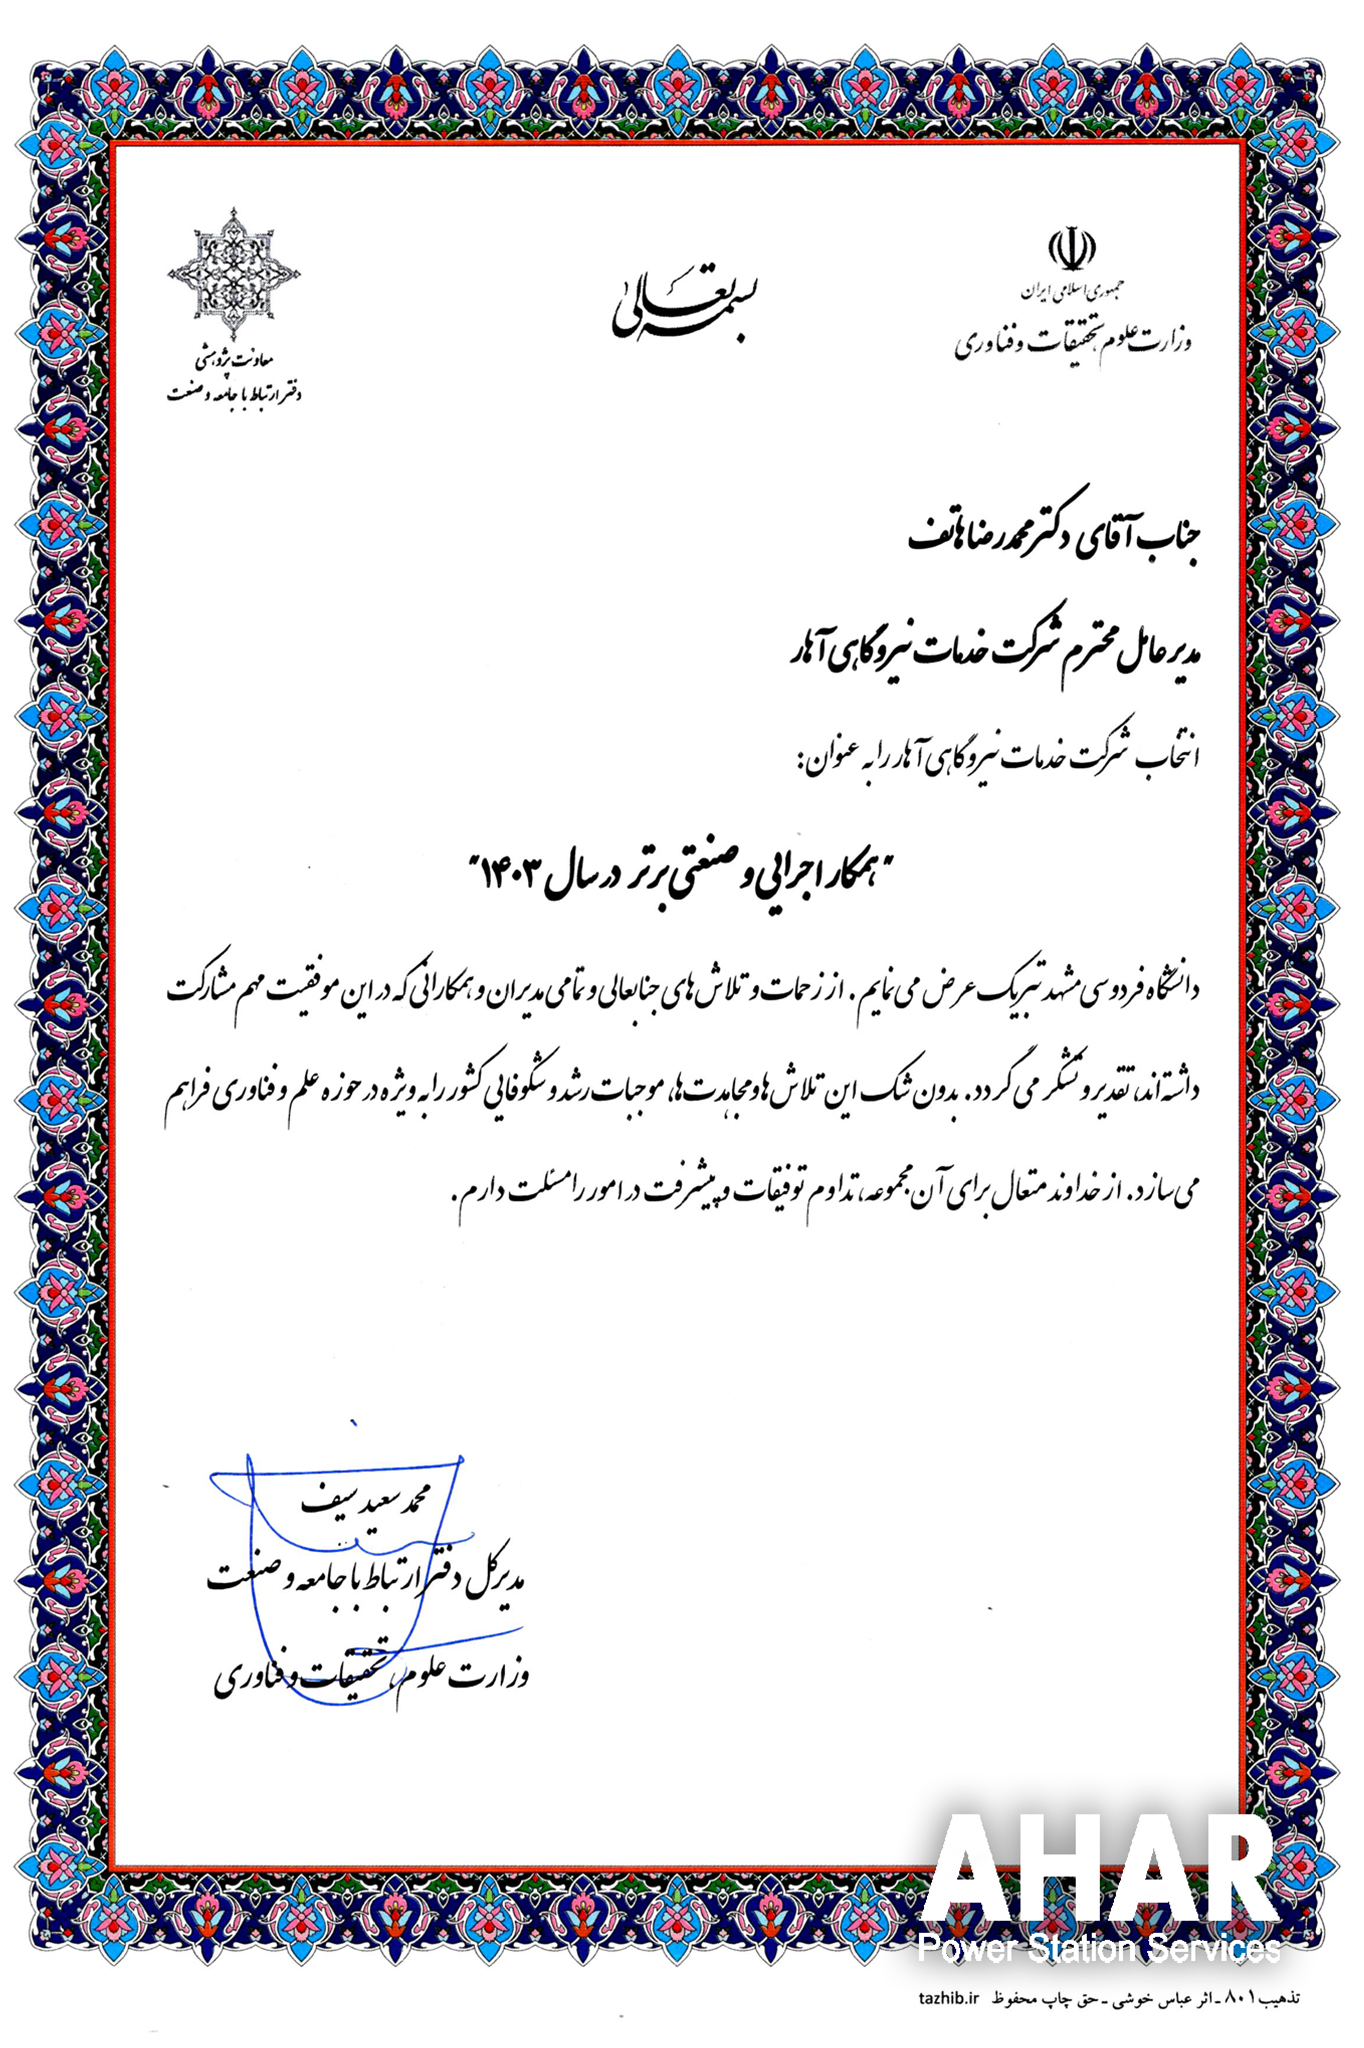 جمهوری اسلامی ایران
وزارت علوم، تحقیقات و فناوری
بسمه تعالی
معاونت پژوهشی
دفتر ارتباط با جامعه و صنعت
جناب آقای دکتر محمدرضا هاتف
مدیرعامل محترم شرکت خدمات نیروگاهی آهار
انتخاب شرکت خدمات نیروگاهی آهار را به عنوان:
"همکار اجرایی و صنعتی برتر در سال ۱۴۰۳"
دانشگاه فردوسی مشهد تبریک عرض می نمایم. از زحمات و تلاش های جنابعالی و تمامی مدیران و همکارانی که در این موفقیت مهم مشارکت
داشته اند، تقدیر و تشکر می گردد. بدون شک این تلاش ها و مجاهدت ها، موجبات رشد و شکوفایی کشور را به ویژه در حوزه علم و فناوری فراهم
می سازد. از خداوند متعال برای آن مجموعه، تداوم توفیقات و پیشرفت در امور را مسئلت دارم.
محمد سعید سیف
مدیرکل دفتر ارتباط با جامعه و صنعت
وزارت علوم، تحقیقات و فناوری
AHAR
Power Station Services
تذهیب ۸۰۱ - اثر عباس خوشی - حق چاپ محفوظ tazhib.ir